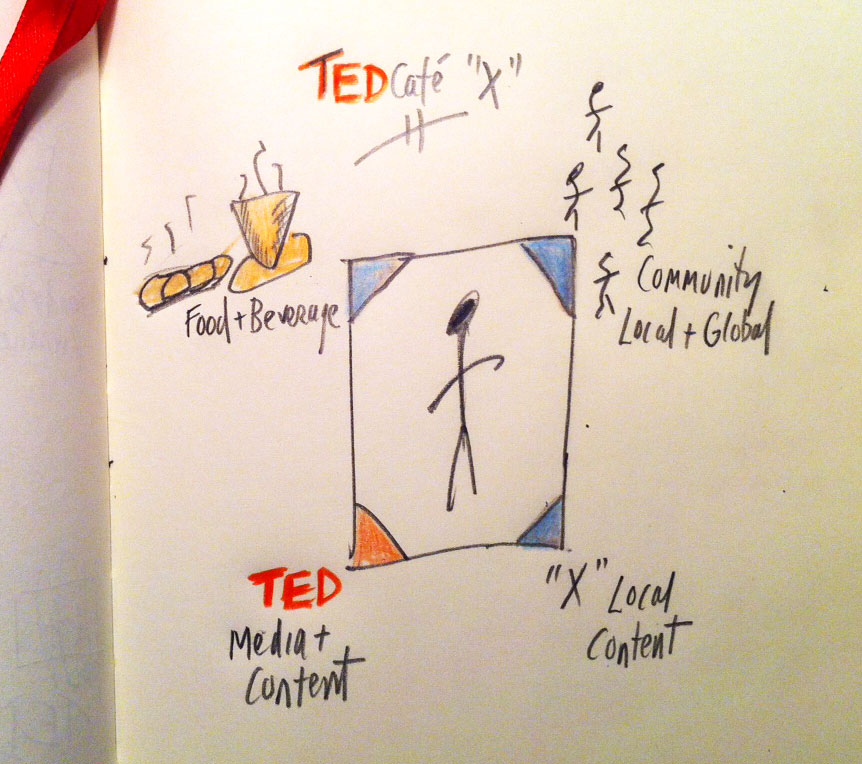 TED Café "X"
Food + Beverage
Community
Local + Global
TED
Media +
Content
"X" Local
Content